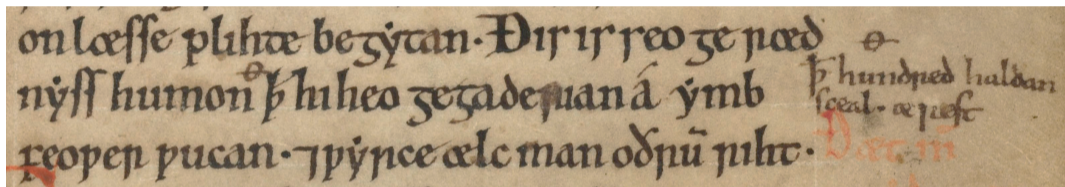 on læsse plihte begytan. Ðis is seo ge ræd
nyss hu mon ꝥ hi heo gegaderian á ymb
feoƿer ƿucan. ⁊ ƿyrce ælc man oðrū riht.
ꝥ hundred haldan
sceal. ærest